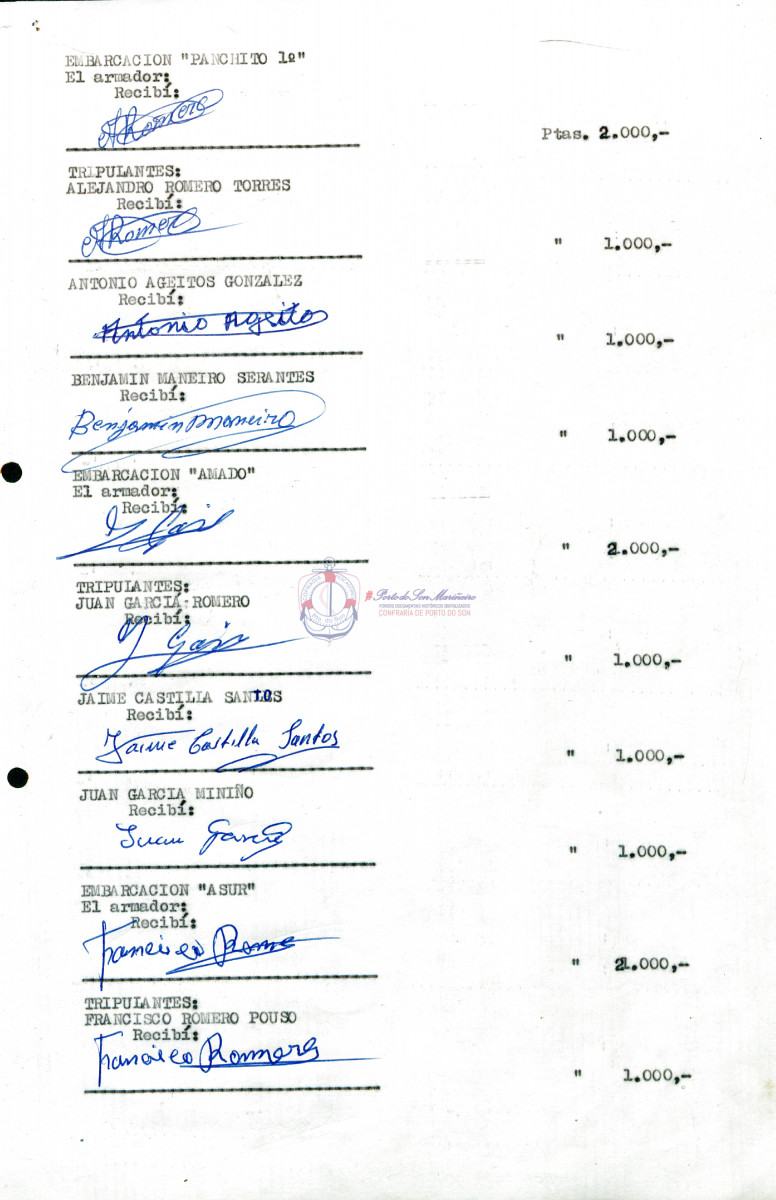 EMBARCACION "PANCHITO 1º"
El armador:
Recibí:
ARomero
Ptas. 2.000,-
TRIPULANTES:
ALEJANDRO ROMERO TORRES
Recibí:
ARomero
" 1.000,-
ANTONIO AGEITOS GONZALEZ
Recibí:
Antonio Ageito
" 1.000,-
BENJAMIN MANEIRO SERANTES
Recibí:
Benjamin Maneiro
" 1.000,-
EMBARCACION "AMADO"
El armador:
Recibí:
" 2.000,-
TRIPULANTES:
JUAN GARCIA ROMERO
Recibí:
#Porto do Son Mariñeiro
FONDOS DOCUMENTAIS HISTÓRICOS DIXITALIZADOS
CONFRARÍA DE PORTO DO SON
" 1.000,-
JAIME CASTILLA SANTOS
Recibí:
Jaime Castilla Santos
" 1.000,-
JUAN GARCIA MINIÑO
Recibí:
Juan García
" 1.000,-
EMBARCACION "ASUR"
El armador:
Recibí:
Francisco Rome
" 2.000,-
TRIPULANTES:
FRANCISCO ROMERO POUSO
Recibí:
Francisco Romero
" 1.000,-